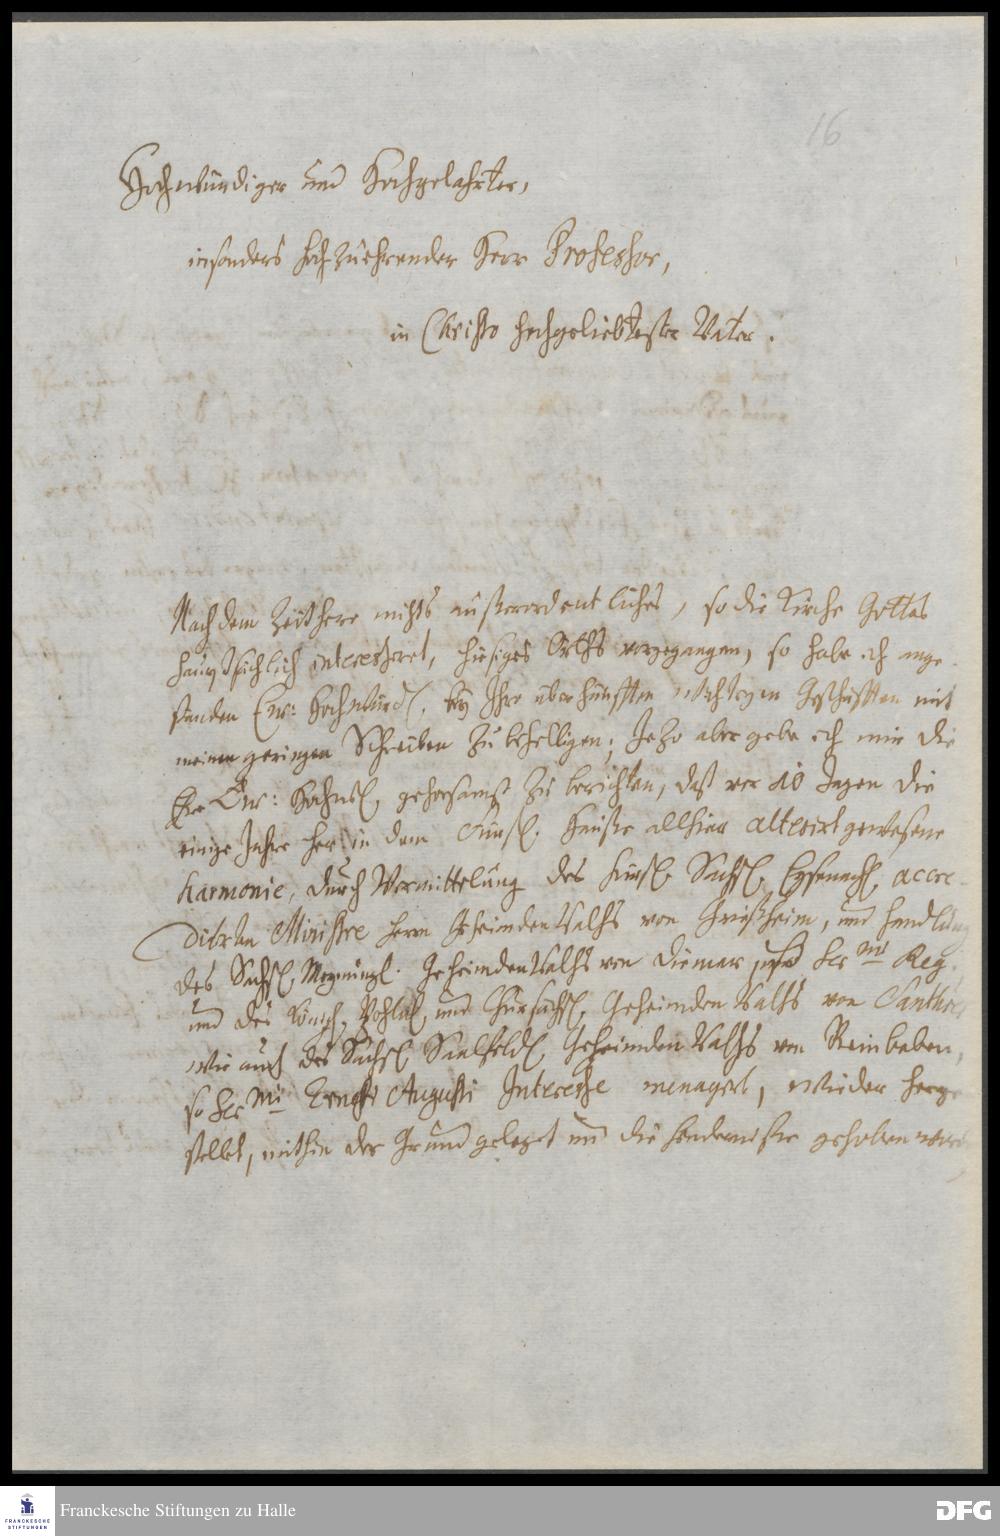 16
Hochwürdiger und Hochgelahrter,
insonders hochzuehrender Herr Professor,
in Christo hochgeliebtester Vater.
Nachdem Zeithero nichts außerordentliches, so die Kirche Gottes
hauptsächlich interessiret, hiesiges Orths vorgegangen, so habe ich ange-
standen Ew: Hochwürd. bey Ihro überhäufften wichtigen Geschäfften mit
meinen geringen Schreiben zu behelligen; Jetzo aber gebe ich mir die
Ehre Ew: Hochw. gehorsamst zu berichten, daß vor 10 Tagen die
einige Jahre her in dem Fürstl. Hauße allhier alterirt gewesene
Harmonie, durch Vermittelung des Fürstl. Sächß. Eysenach. accre-
ditirten Ministre Herrn Geheimden Raths von Grießheim, und Handlung
des Sachß. Meynüngl. Geheimden Raths von Diemar Ser.mi Reg.
und des Königl. Pohln. und Chursächß. Geheimden Raths von
wie auch des Sachß. Saalfeld. Geheimden Raths von Reinbaben,
so Ser.mi Ernesti Augusti Interesse menagirt, wieder herge-
stellet, mithin der Grund geleget und die Hindernisse gehoben
Franckesche Stiftungen zu Halle
FRANCKESCHE
STIFTUNGEN
DFG